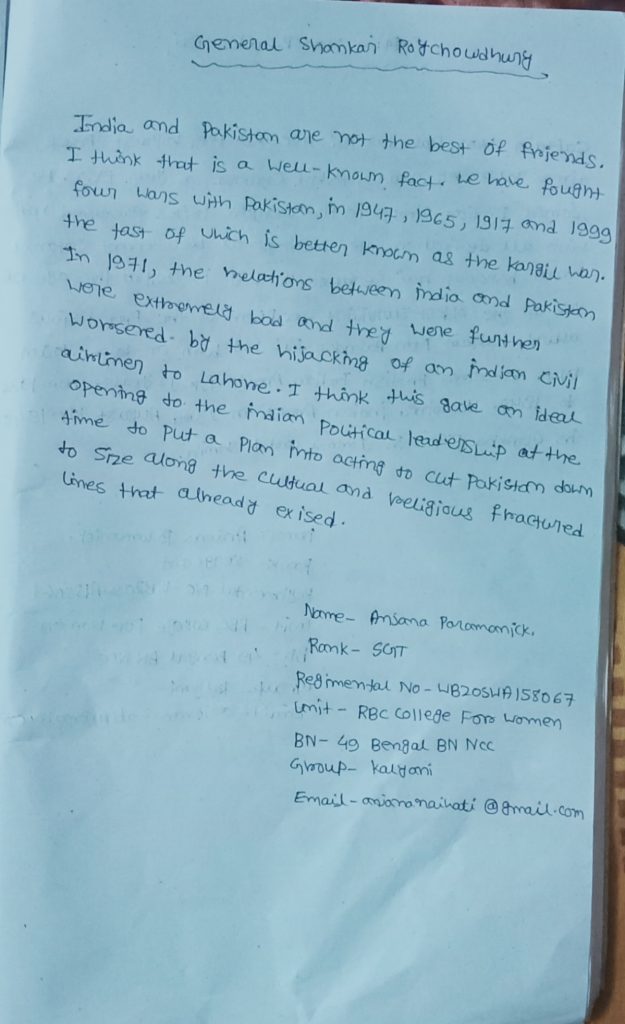 General Shankar Roychowdhury
India and Pakistan are not the best of friends.
I think that is a well-known fact. we have fought
four wars with Pakistan, in 1947, 1965, 1917 and 1999
the fast of which is better known as the kargil war.
In 1971, the relations between india and Pakistan
were extremely bad and they were further
worsered by the hijacking of an indian civil
airliner to Lahore. I think this gave an ideal
opening to the indian Political leadership at the
time to put a plan into acting to cut Pakistan down
to size along the cultual and religious fractured
lines that already exised.
Name- Ansana Paramanick.
Rank- SGT
Regimental No - WB20SWA158067
Unit - RBC College For women
BN- 49 Bengal BN NCC
Group- Kalyani
Email- anjananaihati@gmail.com